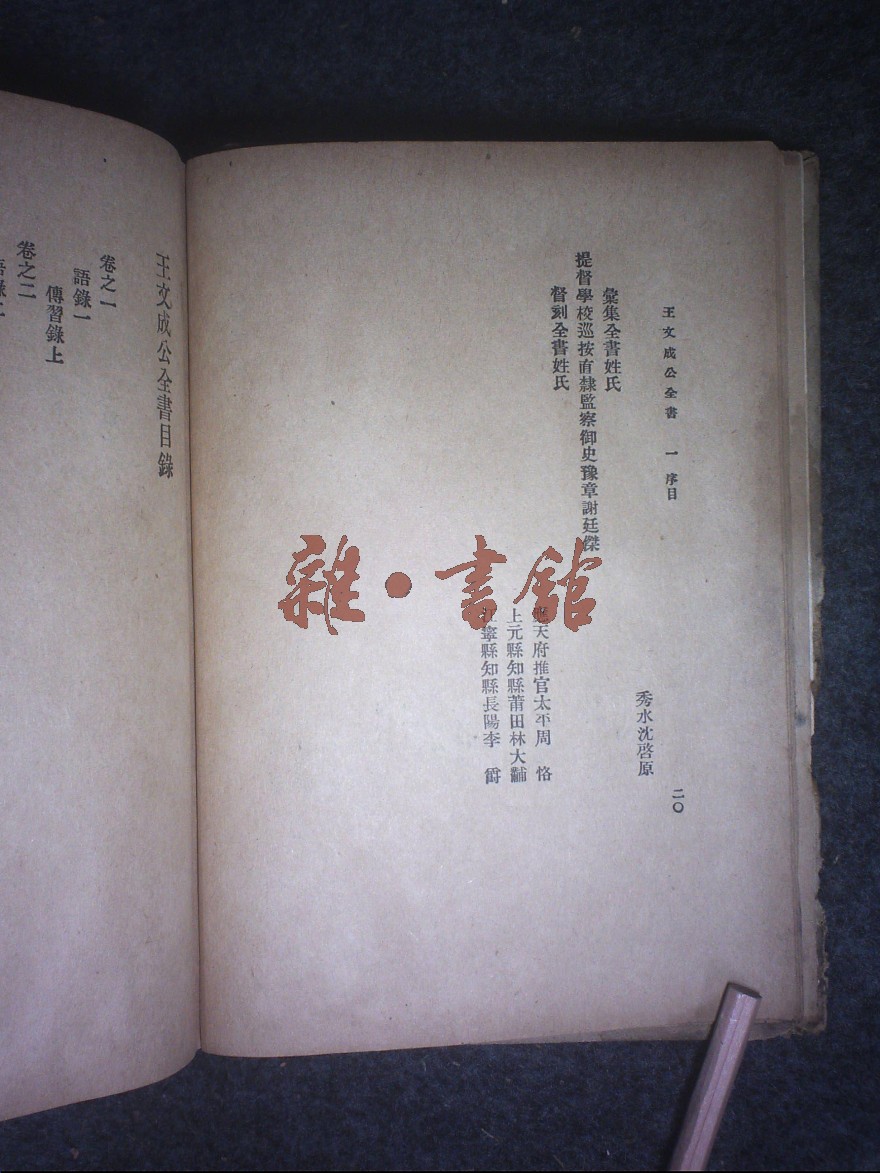 王文成公全書　一　序目
二〇
秀水沈啓原
彙集全書姓氏
提督學校巡按直隸監察御史豫章謝廷傑
督刻全書姓氏
應天府推官太平周　恪
上元縣知縣莆田林大黼
江寧縣知縣長陽李　爵
王文成公全書目錄
卷之一
語錄一
傳習錄上
卷之二
語錄二
雜·書館